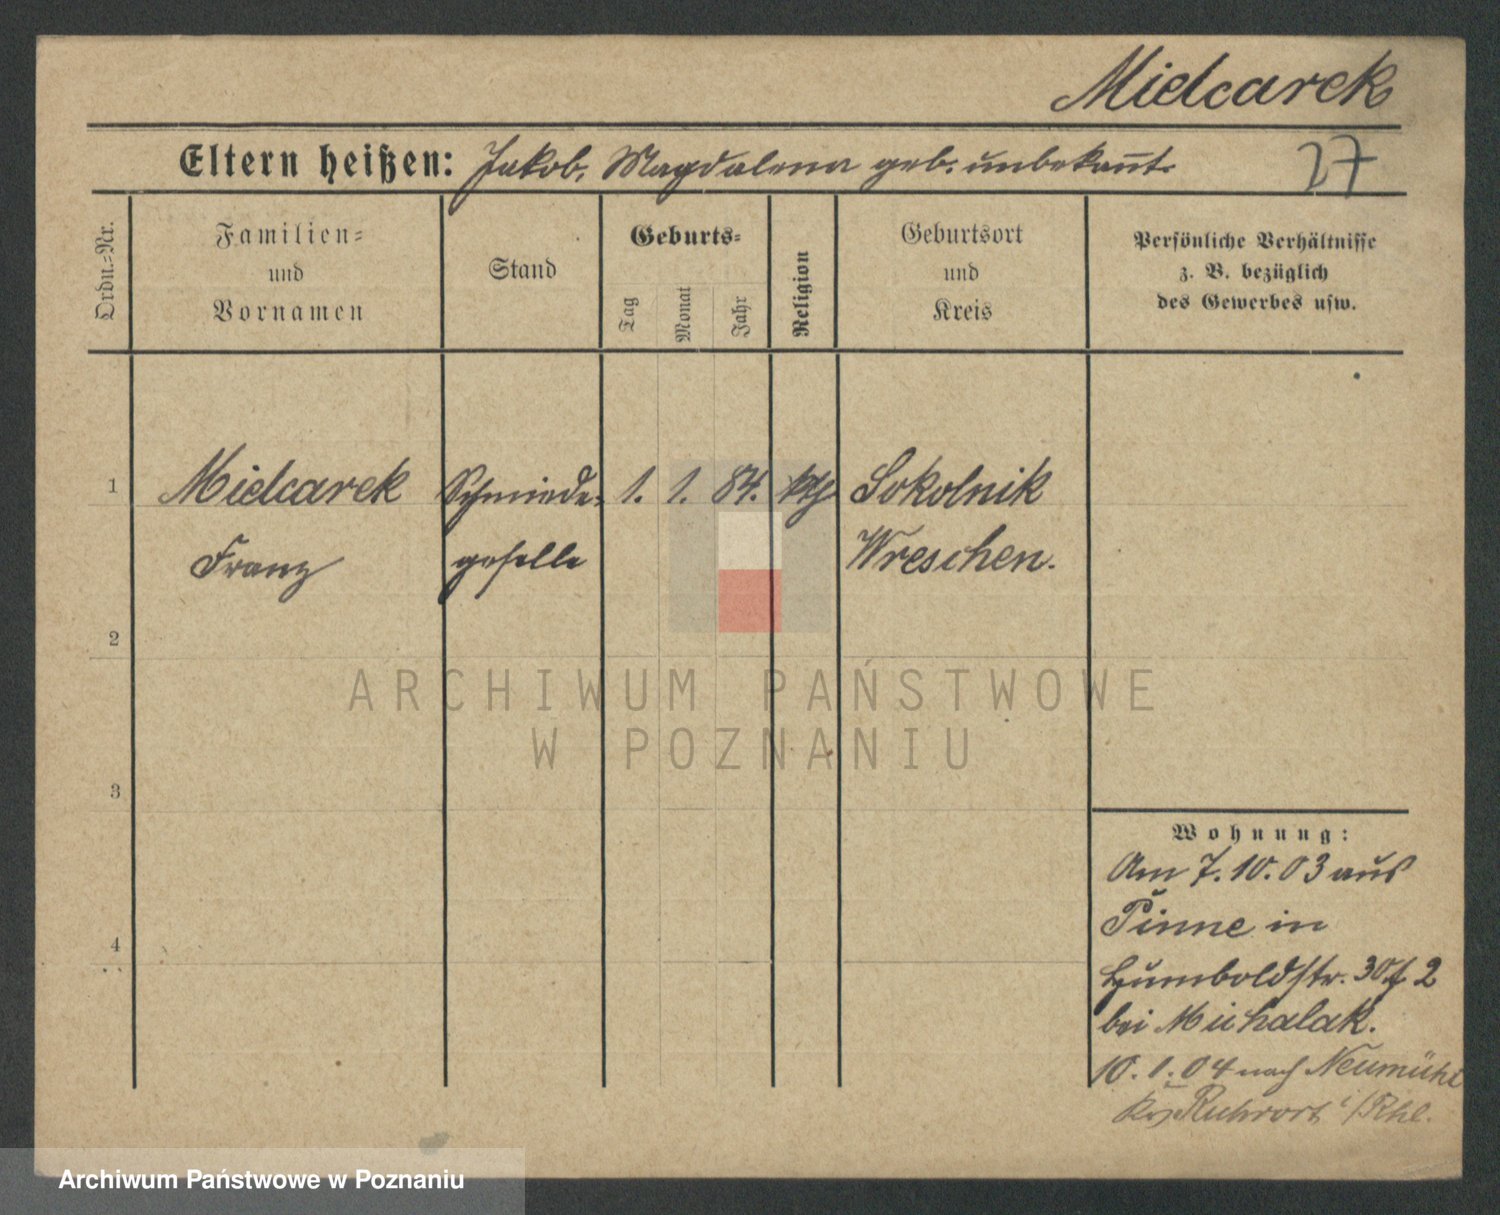 Mielcarek
Eltern heißen: Jakob, Magdalena geb. unbekannt.
27
Ordn.-Nr.
Familien-
und
Vornamen
Stand
Geburts-
Tag
Monat
Jahr
Religion
Geburtsort
und
Kreis
Persönliche Verhältnisse
z. B. bezüglich
des Gewerbes usw.
1
Mielcarek
Franz
Schmiede-
geselle
1.
1.
84.
kth
Sokolnik
Wreschen.
2
3
4
Wohnung:
Am 7.10.03 aus
Pinne in
Humboldstr. 30 2
bei Michalak.
10.1.04 nach Neumühl
Kr. Ruhrort i/Rhl.
ARCHIWUM PAŃSTWOWE
W POZNANIU
Archiwum Państwowe w Poznaniu